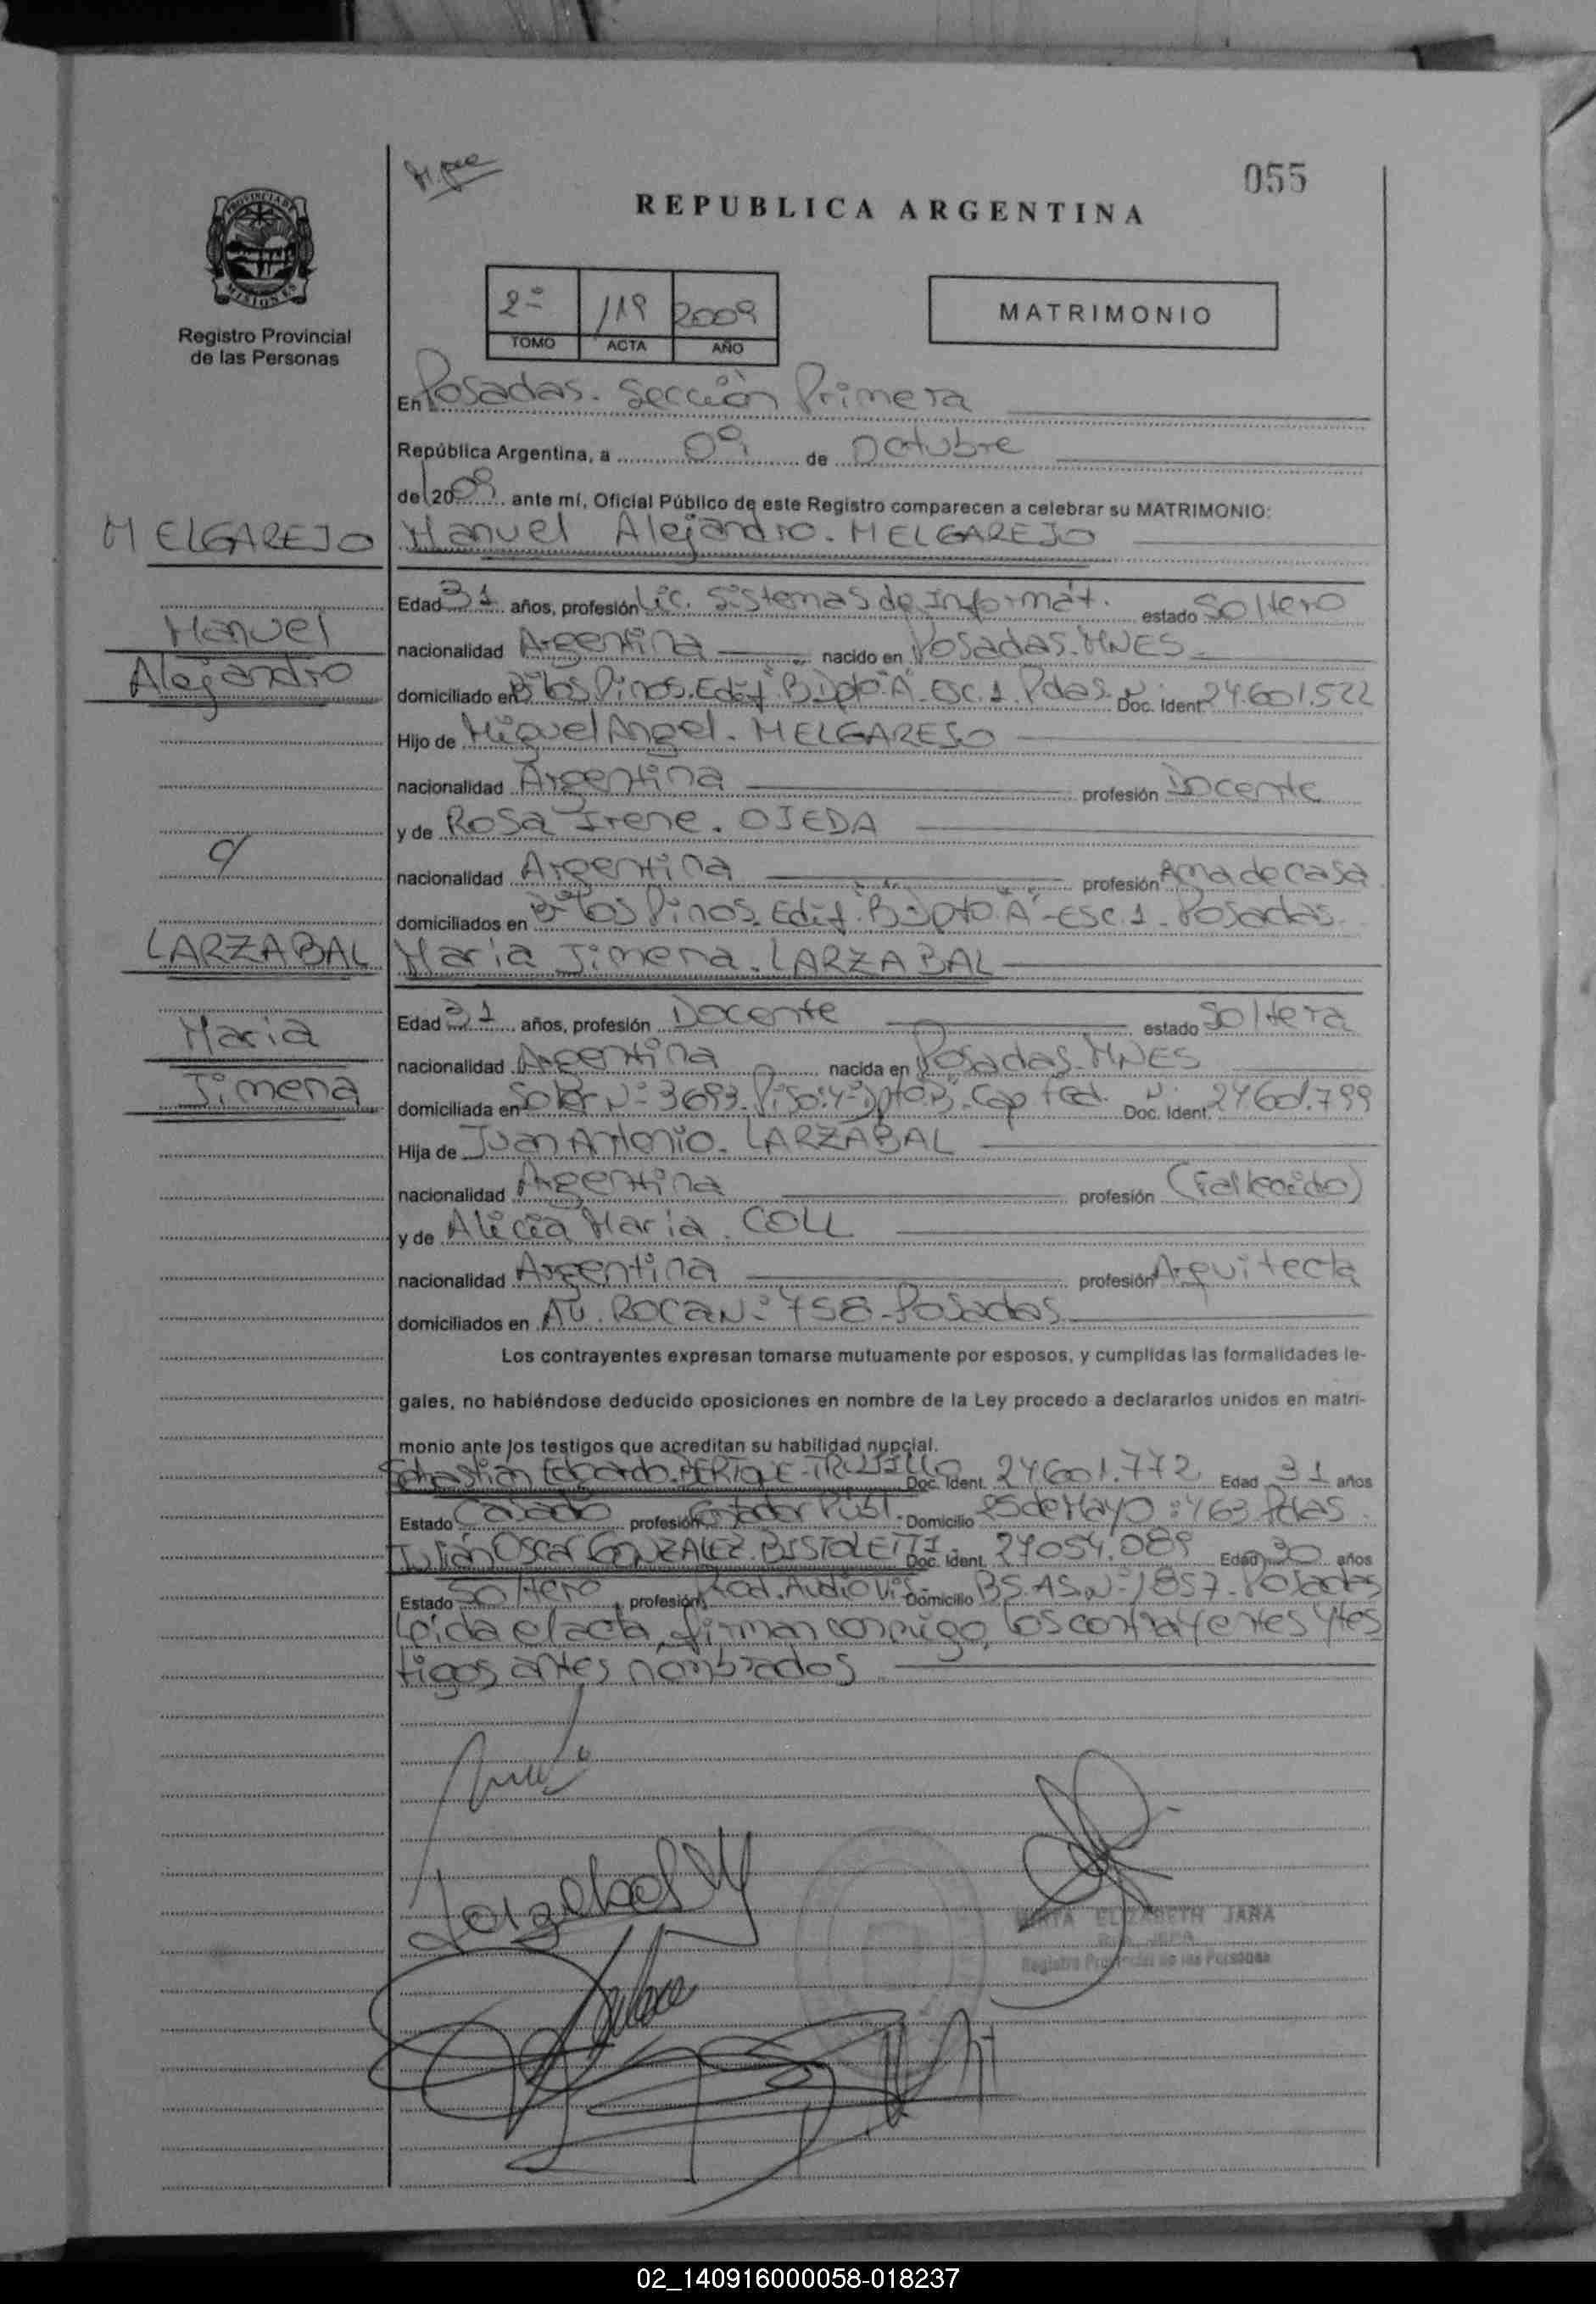 055
REPUBLICA ARGENTINA
PROVINCIA DE
MISIONES
Registro Provincial
de las Personas
2º 119 2009
TOMO ACTA AÑO
MATRIMONIO
En Posadas. Sección Primera
República Argentina, a 09 de Octubre
del 2009 ante mí, Oficial Público de este Registro comparecen a celebrar su MATRIMONIO:
MELGAREJO Manuel Alejandro. MELGAREJO
Edad 31 años, profesión Lic. Sistemas de Informát. estado Soltero
Manuel nacionalidad Argentina nacido en Posadas. MNES
Alejandro domiciliado en Bº los Pinos. Edif. "B" Dpto. "A" Esc. 1. Pdas. Doc. Ident. Nº 24.601.522
Hijo de Miguel Angel. MELGAREJO
nacionalidad Argentina profesión Docente
y de Rosa Irene. OJEDA
c/ nacionalidad Argentina profesión Ama de casa
domiciliados en Bº los Pinos. Edif. "B" Dpto. "A" - Esc. 1 - Posadas.
LARZABAL Maria Jimena. LARZABAL
Edad 31 años, profesión Docente estado Soltera
Maria nacionalidad Argentina nacida en Posadas. MNES
Jimena domiciliada en Soler Nº 3693. Piso: 4º Dpto. B. Cap Fed. Doc. Ident. Nº 24601.799
Hija de Juan Antonio. LARZABAL
nacionalidad Argentina profesión (Fallecido)
y de Alicia Maria. COLL
nacionalidad Argentina profesión Arquitecta
domiciliados en AV. ROCA Nº 758 - Posadas
Los contrayentes expresan tomarse mutuamente por esposos, y cumplidas las formalidades le-
gales, no habiéndose deducido oposiciones en nombre de la Ley procedo a declararlos unidos en matri-
monio ante los testigos que acreditan su habilidad nupcial.
Sebastián TRUJILLO Doc. Ident. 24601.772 Edad 31 años
Estado Casado profesión Contador Públ. Domicilio 25 de Mayo: 463 Pdas.
Julián Oscar GONZALEZ. Doc. Ident. 27054.089 Edad 30 años
Estado Soltero profesión Prod. Audiovis. Domicilio BS. AS. Nº 1857 - Posadas
Leida el acta, firman conmigo, los contrayentes y tes
tigos antes nombrados
Larzabal M
ELIZABETH JARA
Registro Provincial de las Personas
02_140916000058-018237